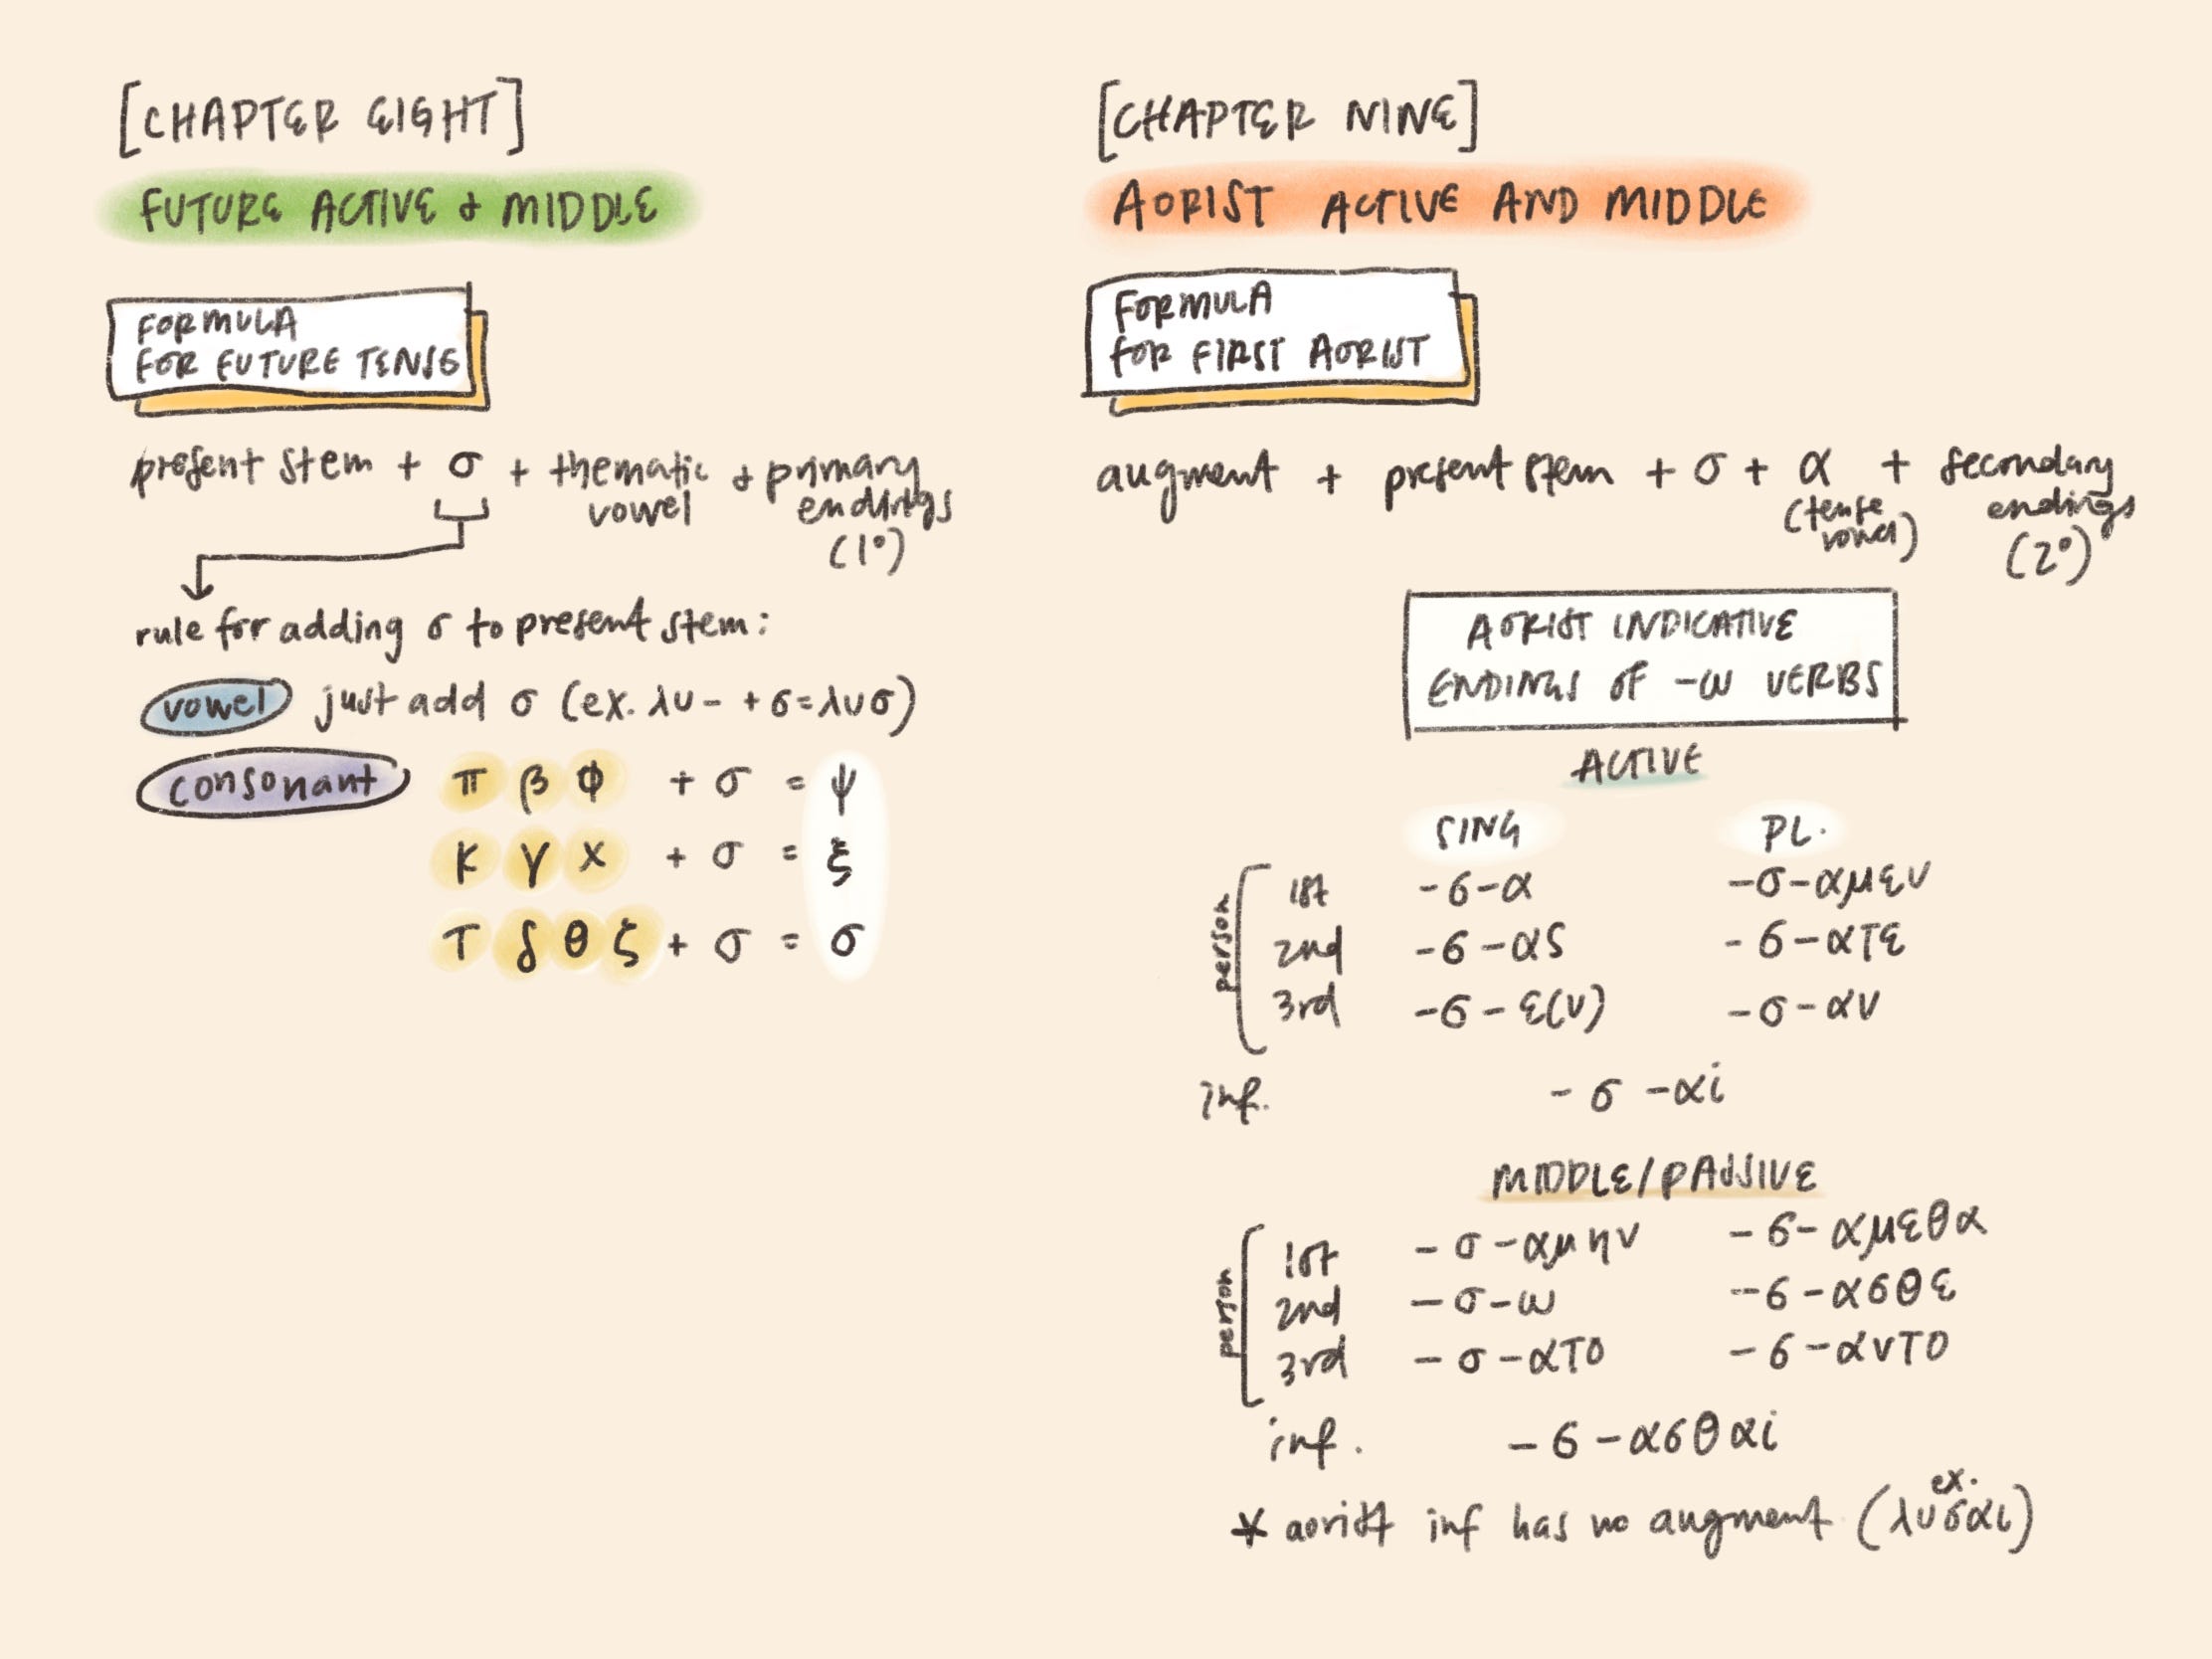 [CHAPTER EIGHT]
FUTURE ACTIVE & MIDDLE
FORMULA
FOR FUTURE TENSE
present stem + σ + thematic vowel + primary endings (1°)
rule for adding σ to present stem:
vowel just add σ (ex. λυ- + σ = λυσ)
consonant π β φ + σ = ψ
κ γ χ + σ = ξ
τ δ θ ζ + σ = σ
[CHAPTER NINE]
AORIST ACTIVE AND MIDDLE
FORMULA
FOR FIRST AORIST
augment + present stem + σ + α (tense vowel) + secondary endings (2°)
AORIST INDICATIVE
ENDINGS OF -ω VERBS
ACTIVE
SING PL.
person
1st -σ-α -σ-αμεν
2nd -σ-ας -σ-ατε
3rd -σ-ε(ν) -σ-αν
inf. -σ-αι
MIDDLE/PASSIVE
person
1st -σ-αμην -σ-αμεθα
2nd -σ-ω -σ-ασθε
3rd -σ-ατο -σ-αντο
inf. -σ-ασθαι
* aorist inf has no augment (ex. λυσαι)